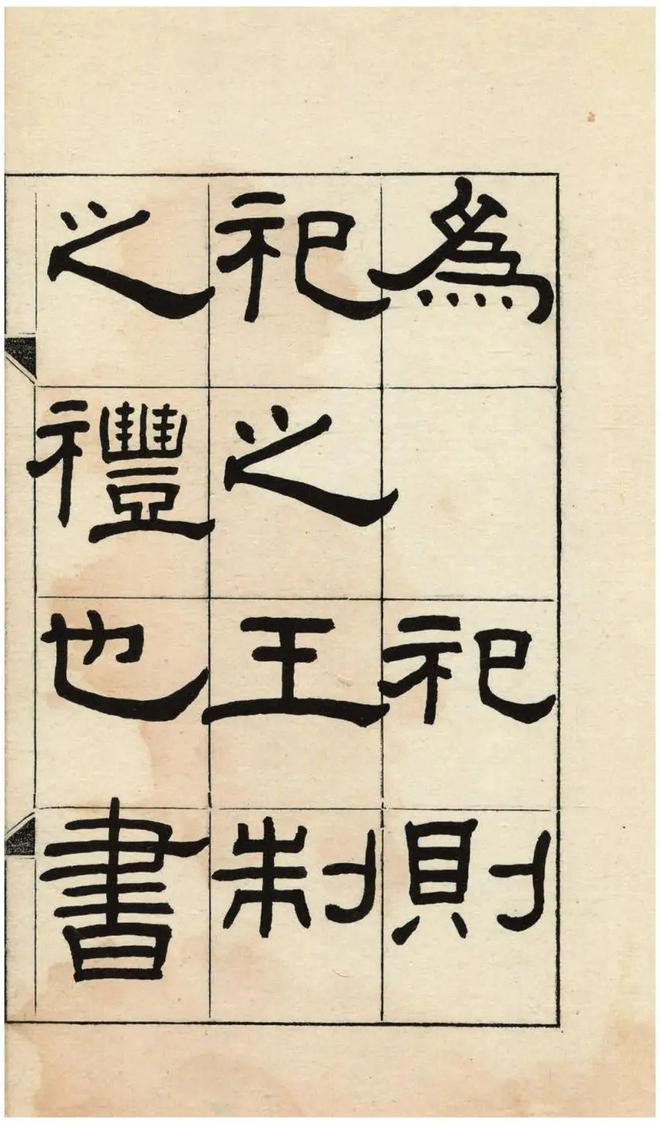 為祀則
祀之王制
之禮也書